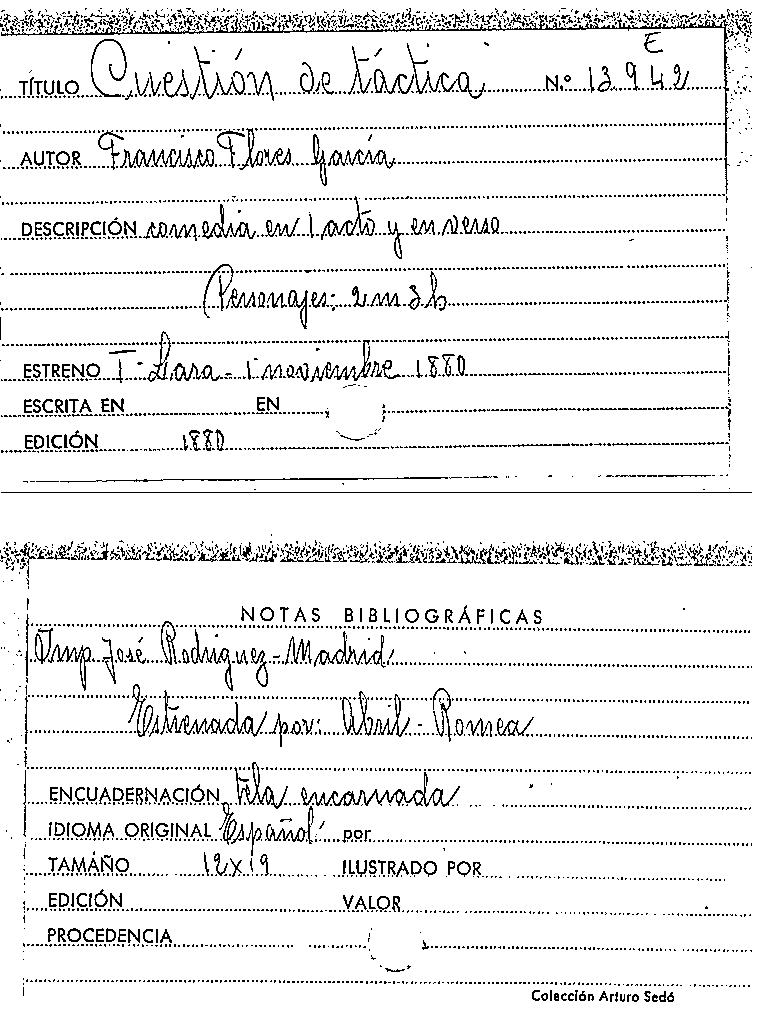 E
TÍTULO Cuestión de táctica N.º 13942
AUTOR Francisco Flores García
DESCRIPCIÓN comedia en 1 acto y en verso
Personajes: 2 m 3 h
ESTRENO T- Lara - 1 noviembre 1880
ESCRITA EN EN
EDICIÓN 1880
NOTAS BIBLIOGRÁFICAS
Imp José Rodriguez - Madrid
Estrenada por: Abril - Romea
ENCUADERNACIÓN tela encarnada
IDIOMA ORIGINAL Español por
TAMAÑO 12x19 ILUSTRADO POR
EDICIÓN VALOR
PROCEDENCIA
Colección Arturo Sedó